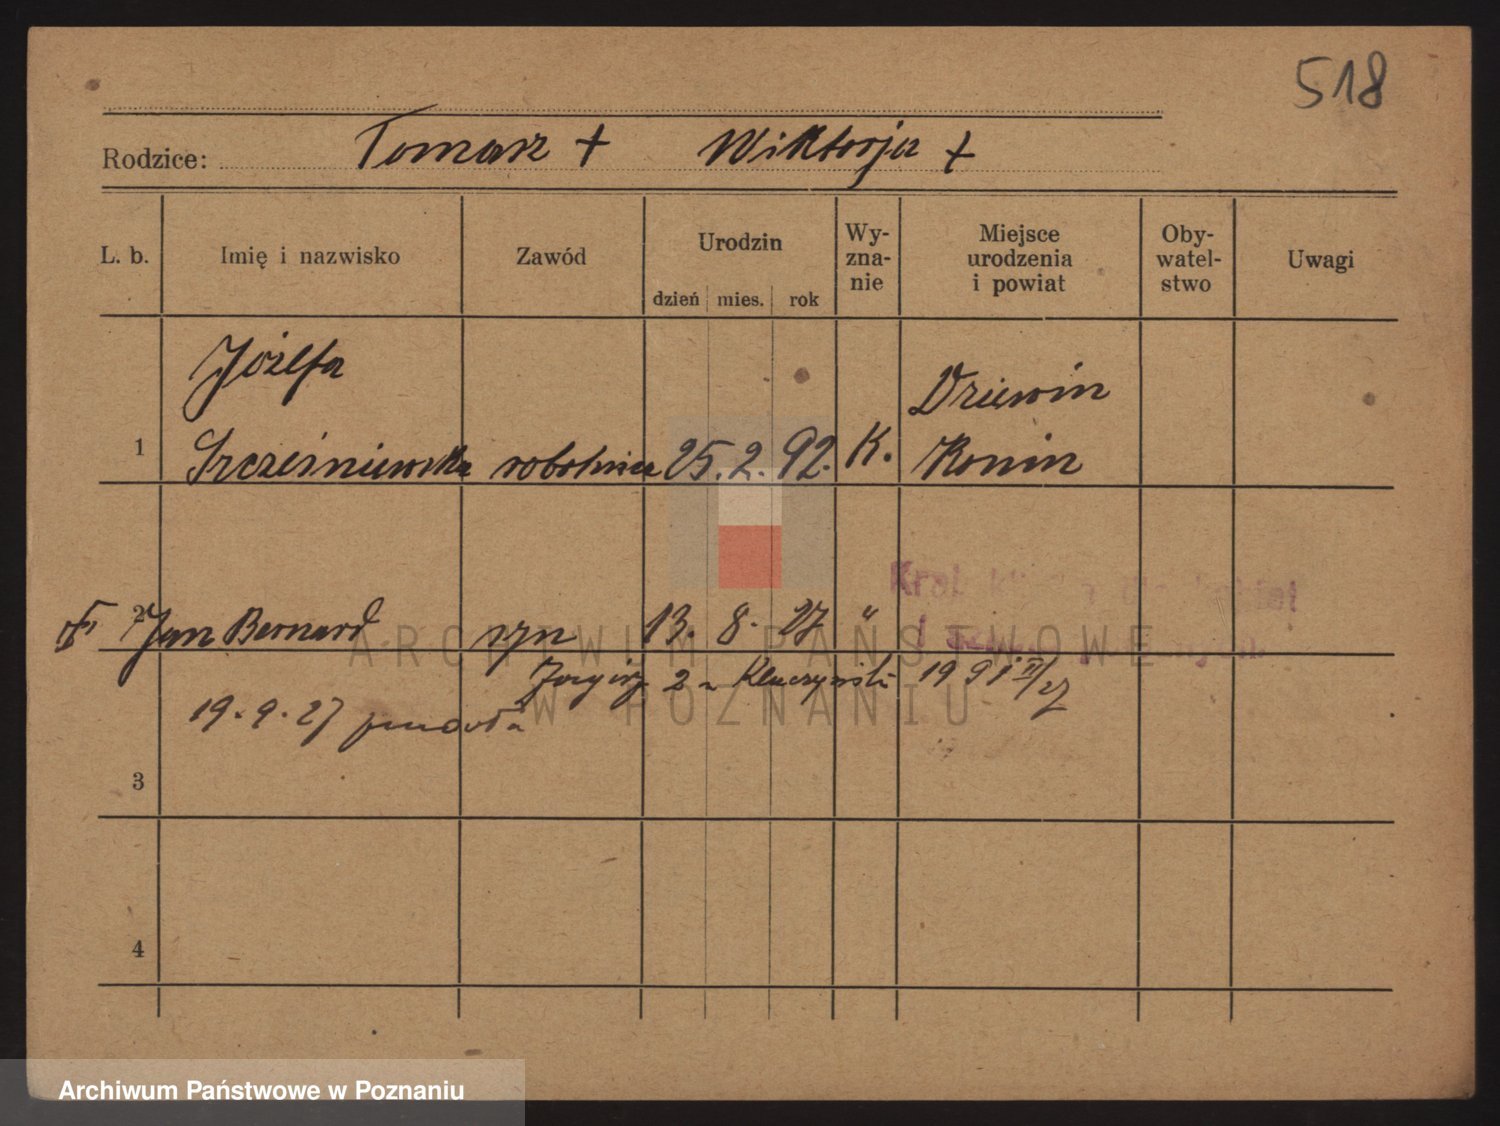 518
Rodzice: Tomasz + Wiktorja +
L. b. Imię i nazwisko Zawód Urodzin dzień mies. rok Wy-zna-nie Miejsce urodzenia i powiat Oby-watel-stwo Uwagi
Józefa Drzewin
1 Szcześniewska robotnica 25. 2. 92. K. Konin
2 Jan Bernard syn 13. 8. 27 "
2 Kluczyński 19
19.9.27
3
4
ARCHIWUM PAŃSTWOWE
W POZNANIU
Archiwum Państwowe w Poznaniu